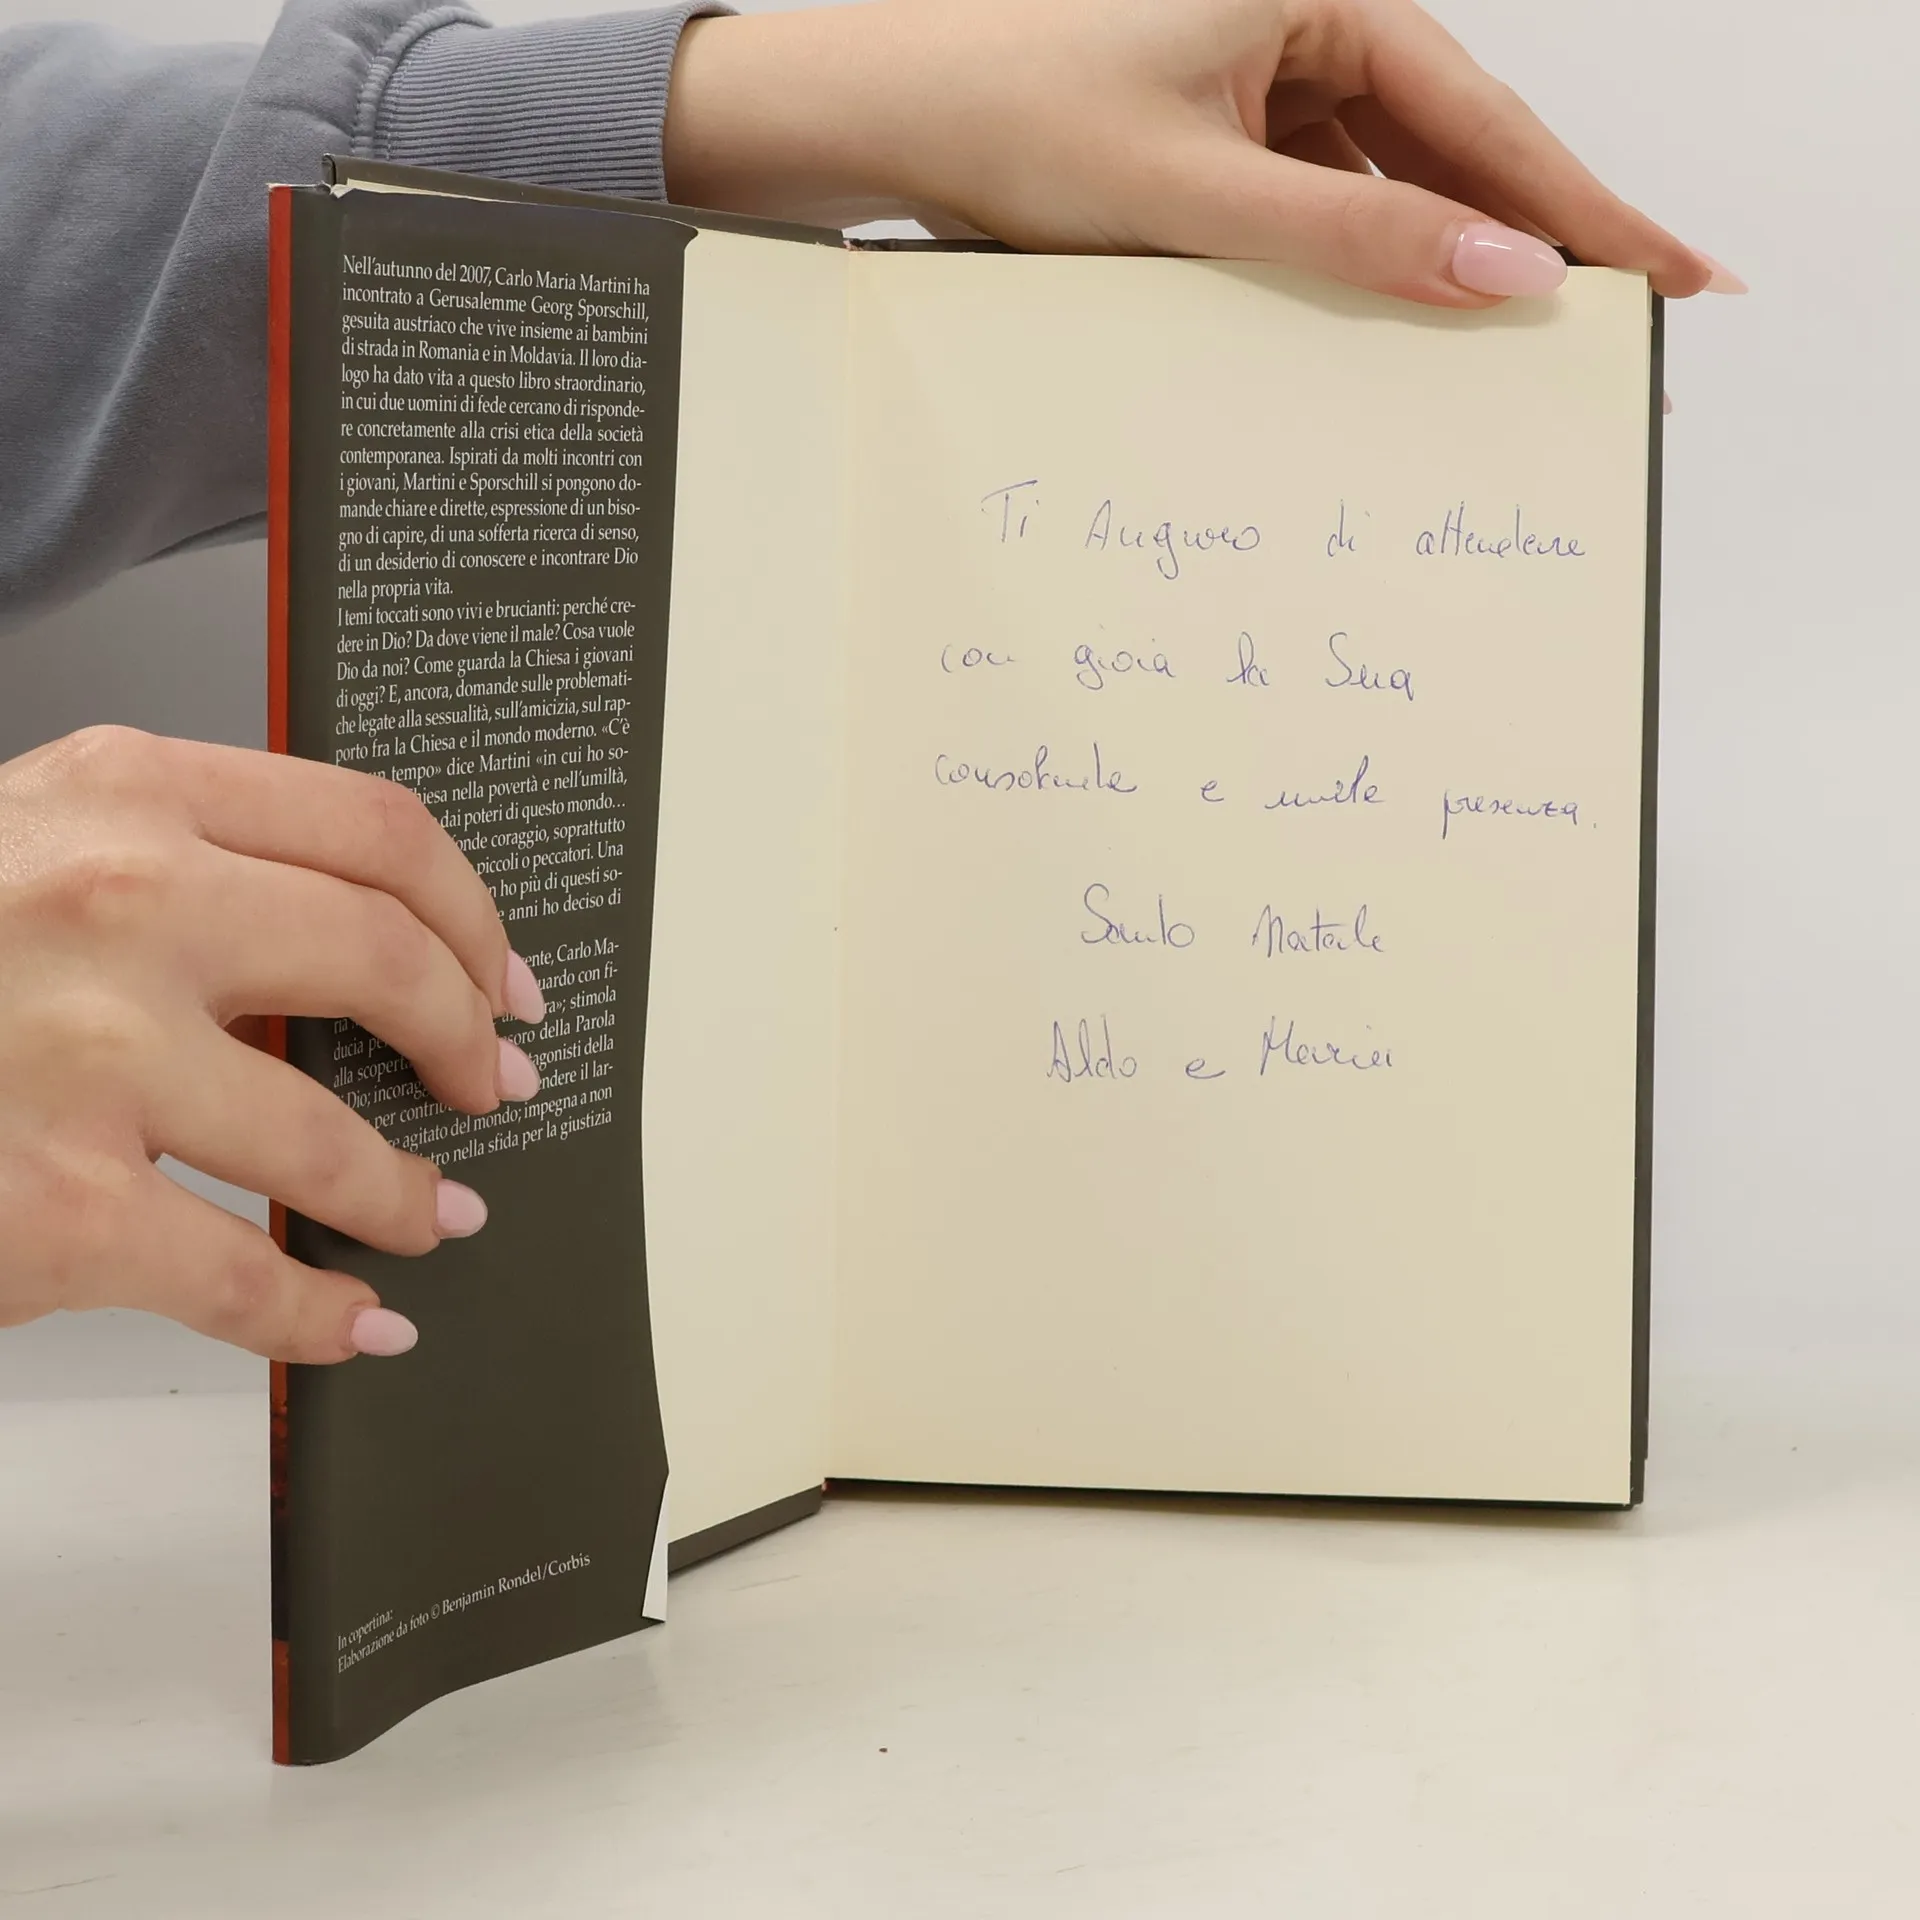 Nell'autunno del 2007, Carlo Maria Martini ha
incontrato a Gerusalemme Georg Sporschill,
gesuita austriaco che vive insieme ai bambini
di strada in Romania e in Moldavia. Il loro dia-
logo ha dato vita a questo libro straordinario,
in cui due uomini di fede cercano di risponde-
re concretamente alla crisi etica della società
contemporanea. Ispirati da molti incontri con
i giovani, Martini e Sporschill si pongono do-
mande chiare e dirette, espressione di un biso-
gno di capire, di una sofferta ricerca di senso,
di un desiderio di conoscere e incontrare Dio
nella propria vita.
I temi toccati sono vivi e brucianti: perché cre-
dere in Dio? Da dove viene il male? Cosa vuole
Dio da noi? Come guarda la Chiesa i giovani
di oggi? E, ancora, domande sulle problemati-
che legate alla sessualità, sull'amicizia, sul rap-
porto fra la Chiesa e il mondo moderno. «C'è
tempo» dice Martini «in cui ho so-
nella povertà e nell'umiltà,
dai poteri di questo mondo...
coraggio, soprattutto
piccoli o peccatori. Una
ho più di questi so-
anni ho deciso di
Carlo Ma-
con fi-
stimola
della Parola
alla
della
Dio;
il lar-
per
agitato del mondo; impegna a non
nella sfida per la giustizia
In copertina:
Elaborazione da foto © Benjamin Rondel/Corbis
Ti Auguro di attendere
con gioia la Sua
consolante e umile presenza.
Santo Natale
Aldo e Maria